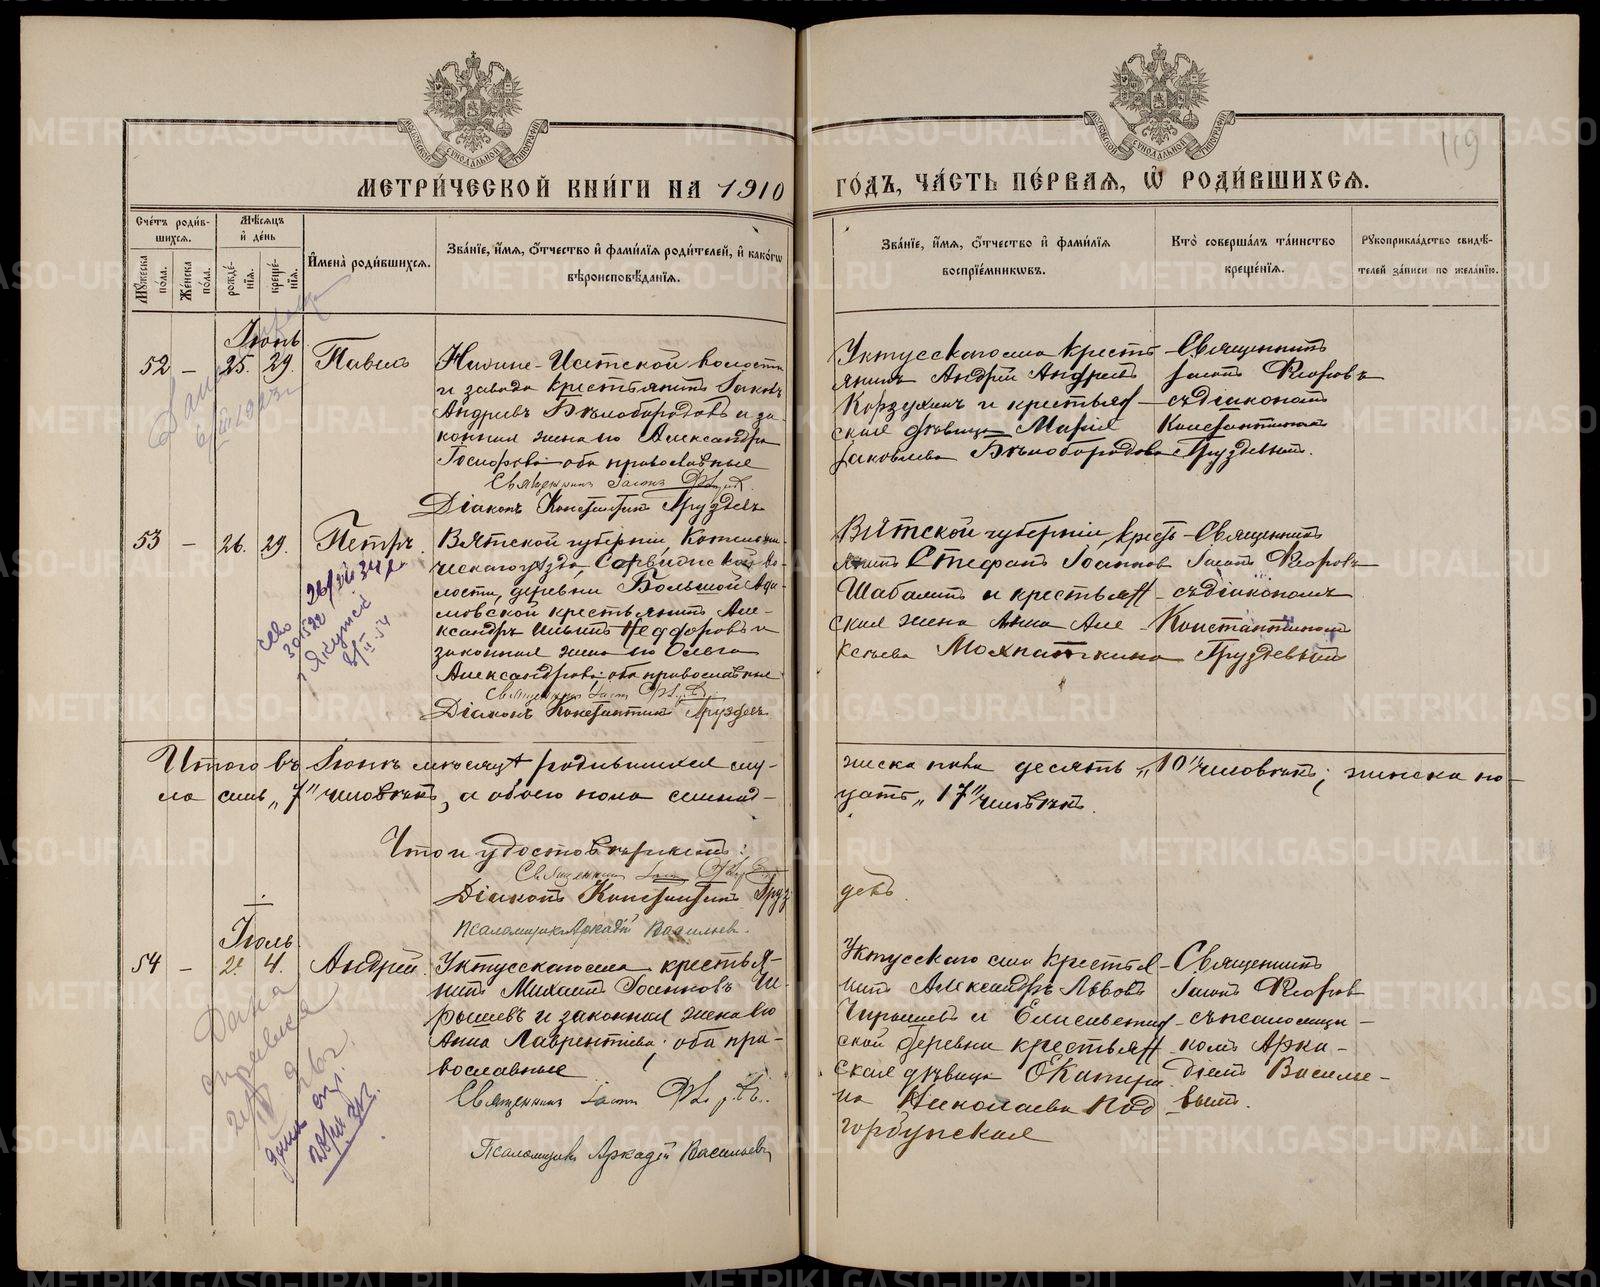 МЕТРИ́ЧЕСКОЙ КНИ́ГИ НА 1910
ГО́ДЪ, ЧА́СТЬ ПЕ́РВАЯ, Ѡ РОДИ́ВШИХСЯ.
119
Сче́тъ роди́в-
шихся.
Мѣ́сяцъ
и де́нь
Му́жеска
по́ла.
Же́нска
по́ла.
рожде́-
нїя.
креще́-
нїя.
И҆мена̀ роди́вшихся.
Зва́нїе, и҆́мя, ѻ҆́тчество и҆ фами́лїя роди́телей, и҆ како́гѡ
вѣроисповѣ́данїя.
Зва́нїе, и҆́мя, ѻ҆́тчество и҆ фами́лїя
воспрїе́мникѡвъ.
Кто̀ соверша́лъ та́инство
креще́нїя.
Рꙋкоприкла́дство свидѣ́-
телей за́писи по жела́нїю.
Іюнь
52 – 25. 29. Павелъ
Нижне-Исетской волости
и завода крестьянинъ Іаковъ
Андреевъ Бѣлобородовъ и за-
конная жена его Александра
Іосифова оба православные
Священникъ Іоаннъ
Діаконъ Константинъ Груздевъ
Уктусскаго села крестья-
янинъ Андрей Андреевъ
Корзухинъ и крестьян-
ская дѣвица Марія
Іаковлева Бѣлобородова
Священникъ
Іоаннъ Флоровъ
съ діакономъ
Константиномъ
Груздевымъ.
53 – 26. 29. Петръ
Вятской губерніи, Котельни-
ческаго уѣзда, Сорвижской во-
лости, деревни Большой Ада-
мовской крестьянинъ Але-
ксандръ Ильинъ Неддоровъ и
законная жена его Ольга
Александрова оба православные
Священникъ Іоаннъ
Діаконъ Константинъ Груздевъ
30522
г Якутск
8/II-54
Вятской губерніи, крест-
янинъ Стефанъ Іоанновъ
Шабалинъ и крестьян-
ская жена Анна Але-
ксѣева Мохнаткина
Священникъ
Іоаннъ Флоровъ
съ діакономъ
Константиномъ
Груздевымъ
Итого въ Іюнѣ мѣсяцѣ родившихся му-
жеска пола десять „10" человѣкъ; женска по-
ла семь „7" человѣкъ, а обоего пола семнад-
цать „17" человѣкъ.
Что и удостовѣряютъ:
Священникъ Іоаннъ
Діаконъ Константинъ Груз
девъ
Псаломщикъ Аркадій Васильевъ.
Іюль
54 – 2. 4. Андрей.
Уктусскаго села крестья-
нинъ Михаилъ Іоанновъ Чи-
рышевъ и законная жена его
Анна Лаврентіева; оба пра-
вославные
Священникъ Іоаннъ
Псаломщикъ Аркадій Васильевъ
Дана
справка
Уктусскаго села крестья-
нинъ Александръ Львовъ
Чирышевъ и Елисаветин-
ской деревни крестьян-
ская дѣвица Екатери-
на Николаева Под-
горбунская
Священникъ
Іоаннъ Флоровъ
съ псаломщи-
комъ Арка-
діемъ Василье-
вымъ.
METRIKI.GASO-URAL.RU